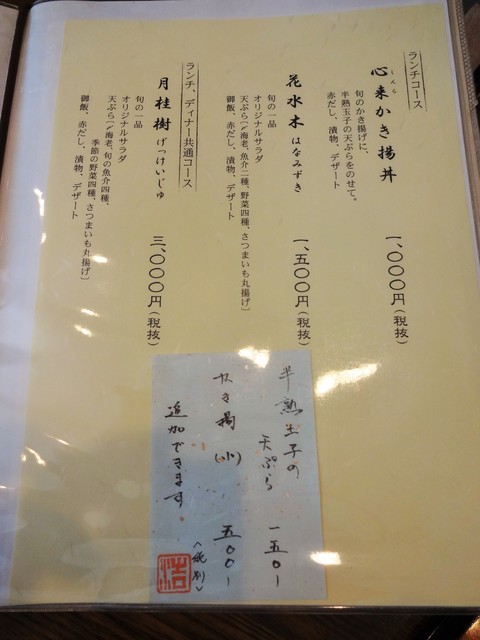 ランチコース
心来かき揚丼
しんら
一、〇〇〇円(税抜)
旬のかき揚げに、
半熟玉子の天ぷらをのせて。
赤だし、漬物、デザート
花水木 はなみずき
一、五〇〇円(税抜)
旬の一品
オリジナルサラダ
天ぷら〔〆海老、魚介二種、野菜四種、さつまいも丸揚げ〕
御飯、赤だし、漬物、デザート
ランチ、ディナー共通コース
月桂樹 げっけいじゅ
三、〇〇〇円(税抜)
旬の一品
オリジナルサラダ
天ぷら〔〆海老、旬の魚介四種、
季節の野菜四種、さつまいも丸揚げ〕
御飯、赤だし、漬物、デザート
半熟玉子の
天ぷら 一五〇-
かき揚(小) 五〇〇-
(税別)
追加できます。